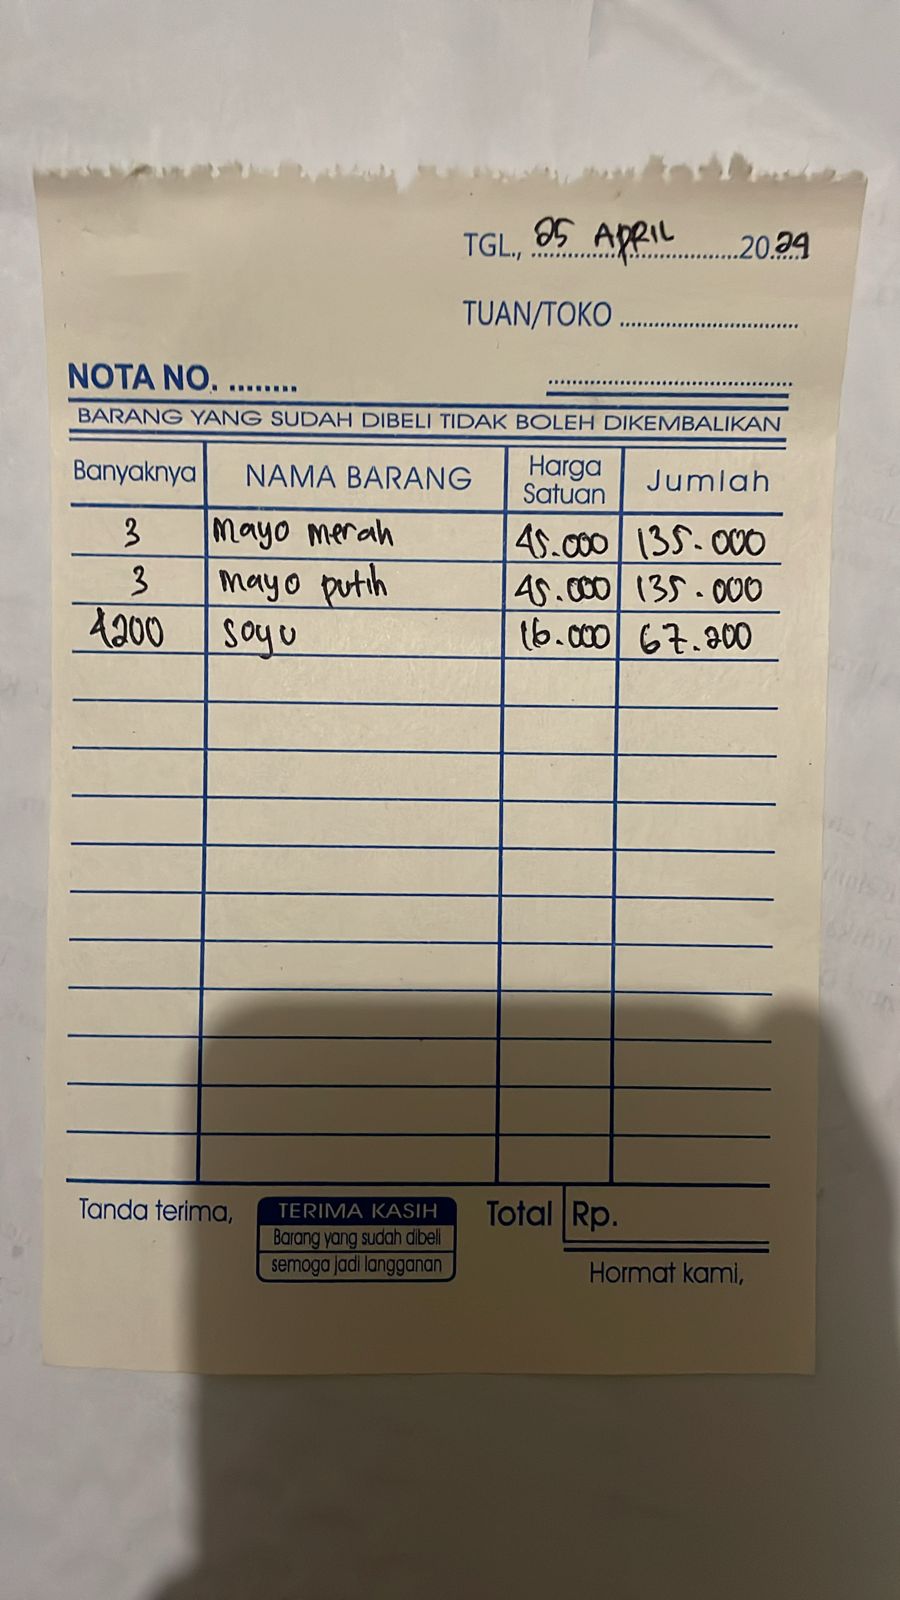 TGL., 25 APRIL 2024
TUAN/TOKO
NOTA NO.
BARANG YANG SUDAH DIBELI TIDAK BOLEH DIKEMBALIKAN
Banyaknya NAMA BARANG Harga Satuan Jumlah
3 Mayo merah 45.000 135.000
3 Mayo putih 45.000 135.000
4200 Soyu 16.000 67.200
Tanda terima, TERIMA KASIH Total Rp.
Barang yang sudah dibeli
semoga jadi langganan
Hormat kami,